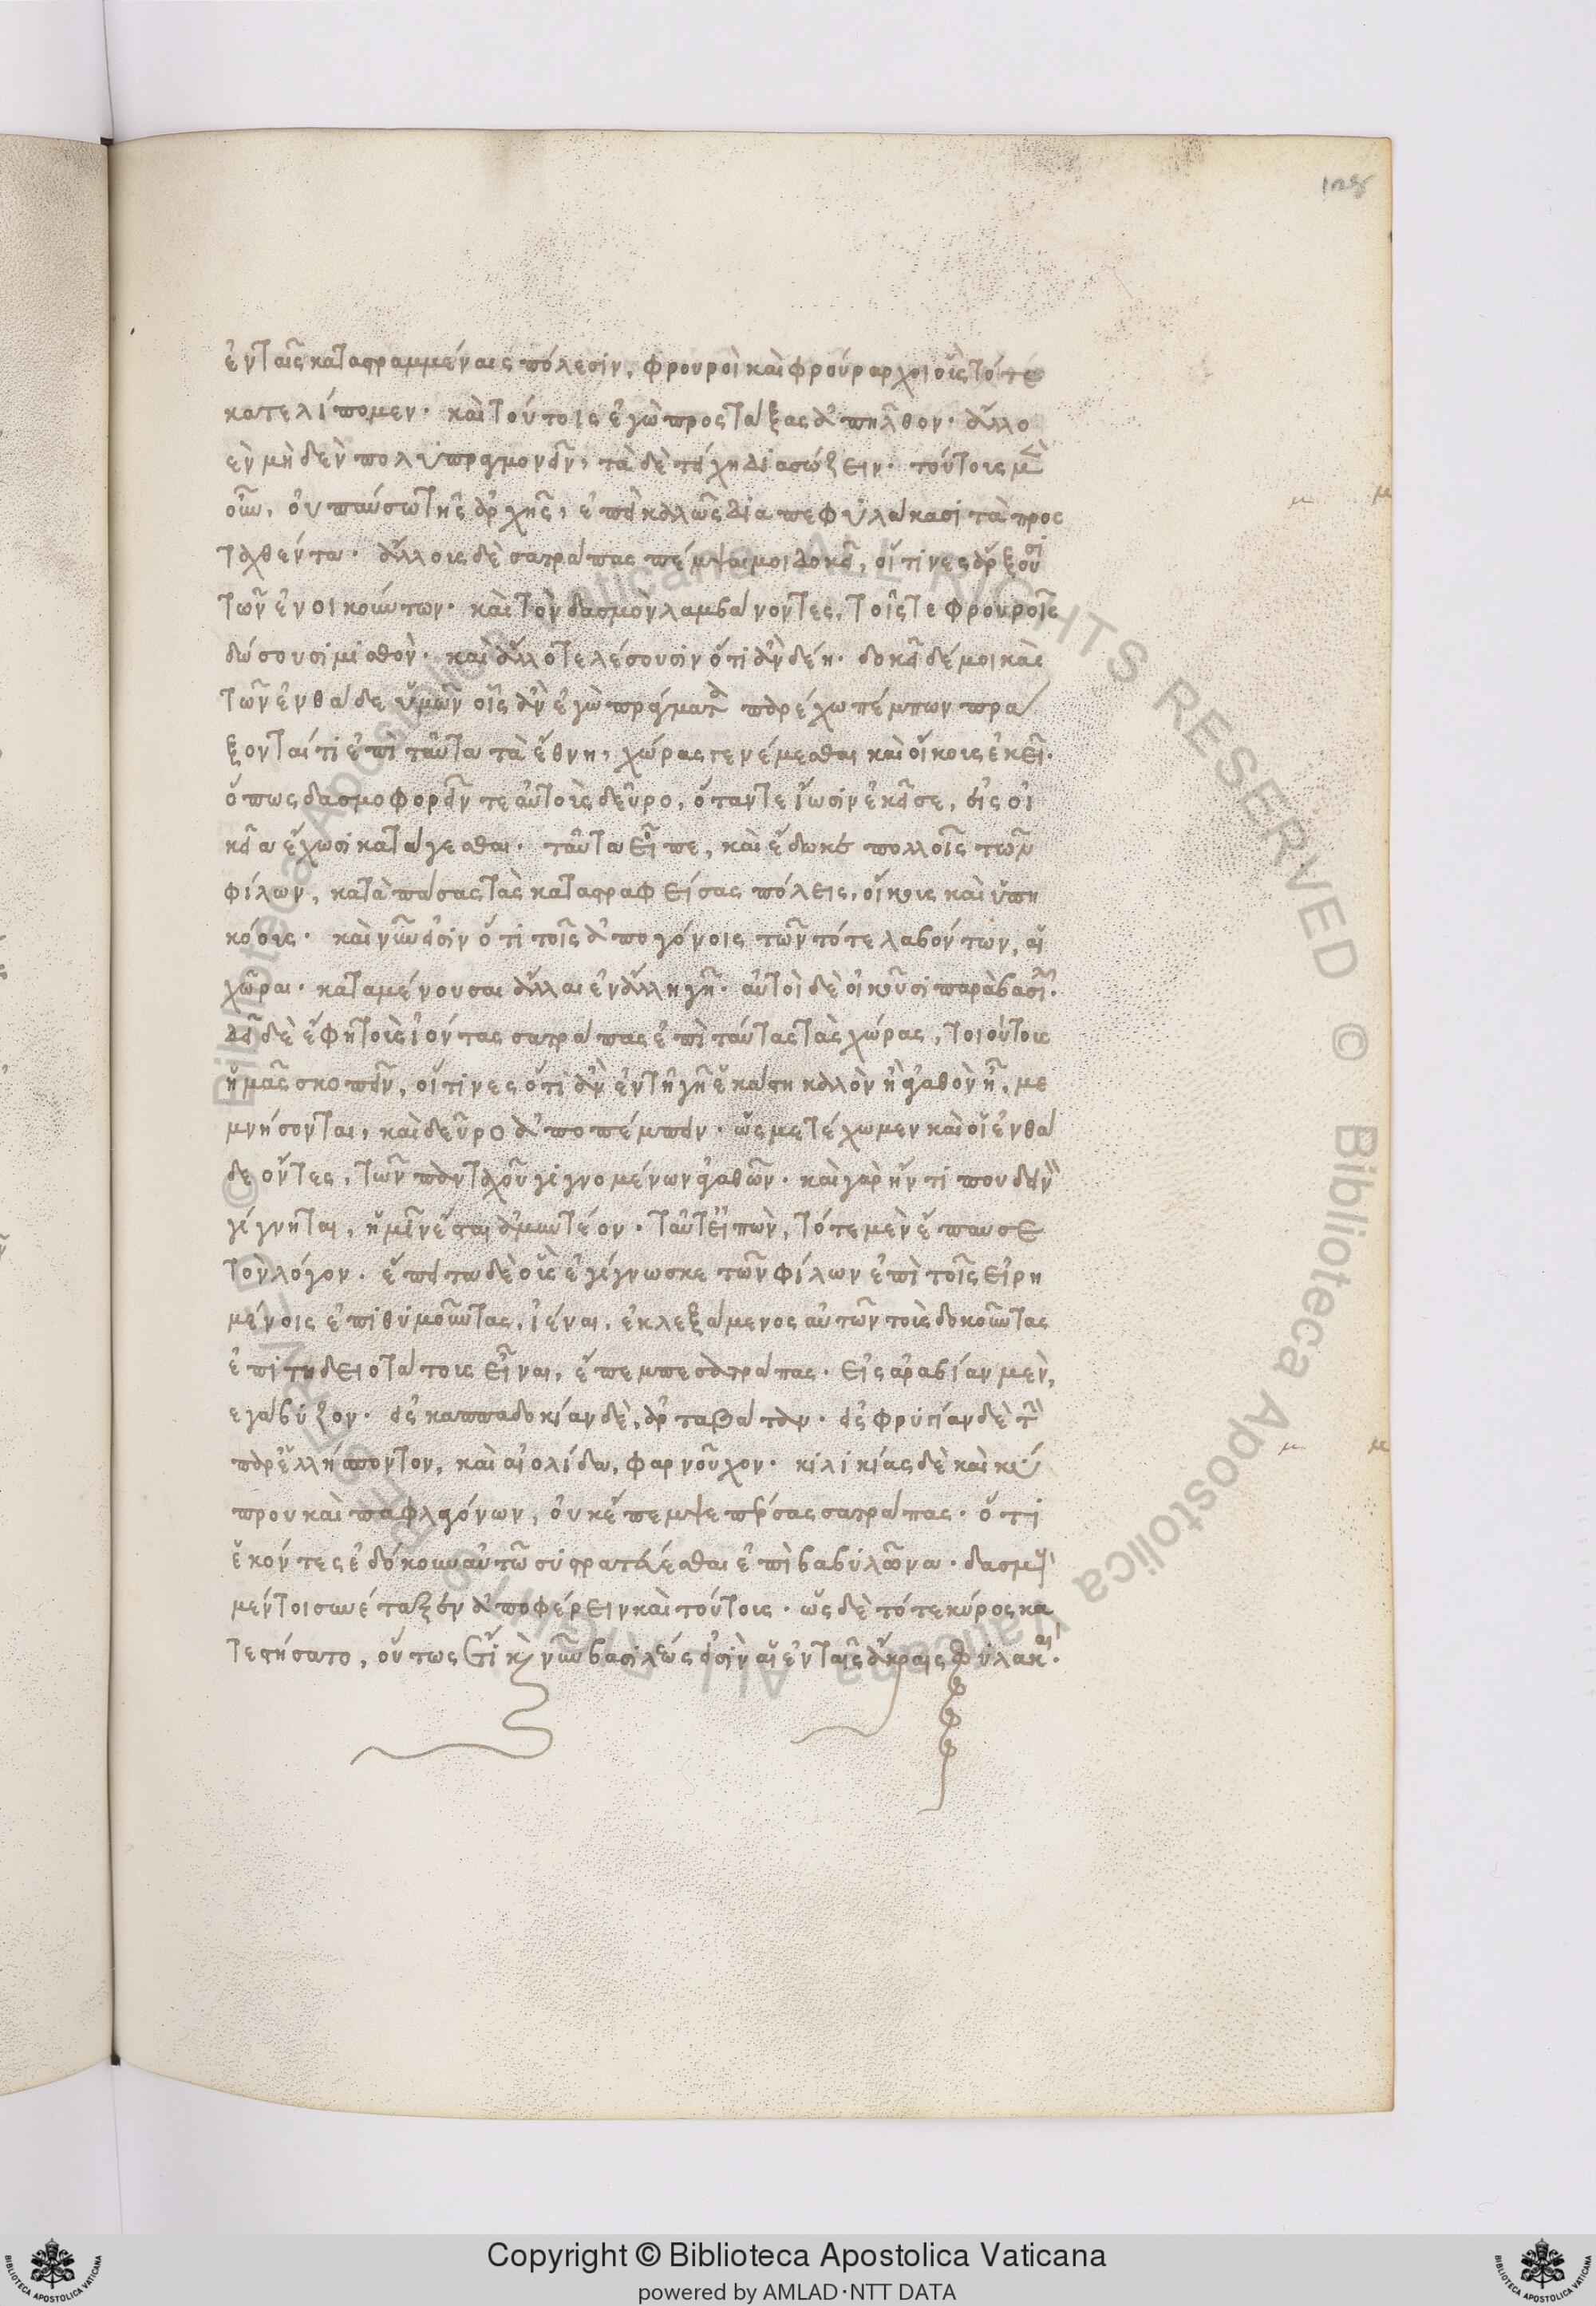 128
ἐν ταῖς καταστραμμέναις πόλεσιν, φρουροὶ καὶ φρούραρχοι οὓς τότε
κατελίπομεν· καὶ τούτοις ἐγὼ προστάξας ἀπῆλθον· ἄλλο
ἐν μηδὲν πολυπραγμονεῖν, τὰ δὲ τείχη διασώζειν· τούτους μὲν
οὖν, οὐ παύσω τῆς ἀρχῆς, ἐπεὶ καλῶς διαπεφύλακασι τὰ προσ
ταχθέντα· ἄλλους δὲ σατράπας πέμψαι μοι δοκεῖ, οἵτινες ἄρξουσι
τῶν ἐνοικούντων· καὶ τὸν δασμὸν λαμβάνοντες, τοῖς τε φρουροῖς
δώσουσι μισθὸν· καὶ ἄλλο τελέσουσιν ὅτι ἂν δέη· δοκεῖ δέ μοι καὶ
τῶν ἐνθάδε ὑμῶν οἷς ἂν ἐγὼ πράγματα παρέχω πέμπων πρά
ξοντάς τι ἐπὶ ταῦτα τὰ ἔθνη, χώρας γενέμεσθαι καὶ οἴκους ἐκεῖ·
ὅπως δασμοφορεῖν τε αὐτοῖς δεῦρο, ὅταν τε ἴωσιν ἐκεῖσε, εἰς οἰ
κεῖα ἔχωσι κατάγεσθαι· ταῦτα εἶπε, καὶ ἔδωκε πολλοῖς τῶν
φίλων, κατὰ πάσας τὰς καταστραφείσας πόλεις, οἴκους καὶ ὑπη
κόους· καὶ νῦν εἰσὶν ὅτι τοῖς ἀπογόνοις τῶν τότε λαβόντων, αἱ
χῶραι· καταμένουσαι ἄλλαι ἐν ἄλλη γῆ· αὐτοὶ δὲ οἰκοῦσι παρὰ βασιλεῖ·
δεῖ δὲ ἔφη τοὺς ἰόντας σατράπας ἐπὶ ταύτας τὰς χώρας, τοιούτους
ἡμᾶς σκοπεῖν, οἵτινες ὅτι ἂν ἐν τῆ γῆ ἑκάστη καλὸν ἢ ἀγαθὸν ἦ, με
μνήσονται, καὶ δεῦρο ἀποπέμπειν· ὡς μετέχωμεν καὶ οἱ ἐνθά
δε ὄντες, τῶν πανταχοῦ γιγνομένων ἀγαθῶν· καὶ γὰρ ἤν τί που δεινὸν
γίγνηται, ἡμῖν ἔσται ἀμυντέον· ταῦτ' εἰπὼν, τότε μὲν ἔπαυσε
τὸν λόγον· ἔπειτα δὲ οὓς ἐγίγνωσκε τῶν φίλων ἐπὶ τοῖς εἰρη
μένοις ἐπιθυμοῦντας, ἰέναι, ἐκλεξάμενος αὐτῶν τοὺς δοκοῦντας
ἐπιτηδειοτάτους εἶναι, ἔπεμπε σατράπας· εἰς ἀραβίαν μὲν,
εγάβυζον· εἰς καππαδοκίαν δὲ, ἀρταβάταν· εἰς φρυγίαν δὲ τὴν
παρ' ἑλλήσποντον, καὶ αἰολίδα, φαρνοῦχον· κιλικίας δὲ καὶ κύ
πρου καὶ παφλαγόνων, οὐκ ἔπεμψε πέρσας σατράπας· ὅτι
ἑκόντες ἐδόκουν αὐτῶ συστρατεύεσθαι ἐπὶ βαβυλῶνα· δασμοὺς
μέντοι συνέταξεν ἀποφέρειν καὶ τούτους· ὡς δὲ τότε κύρος κα
τεστήσατο, οὕτως ἔτι καὶ νῦν βασιλέως εἰσὶν αἱ ἐν ταῖς ἄκραις φυλακαὶ·
Copyright © Biblioteca Apostolica Vaticana
powered by AMLAD·NTT DATA